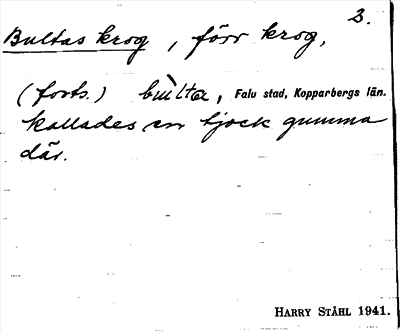 3.
Bultas krog, förr krog,
(forts.) bùlta, Falu stad, Kopparbergs län.
kallades en tjock gumma
där.
HARRY STÅHL 1941.